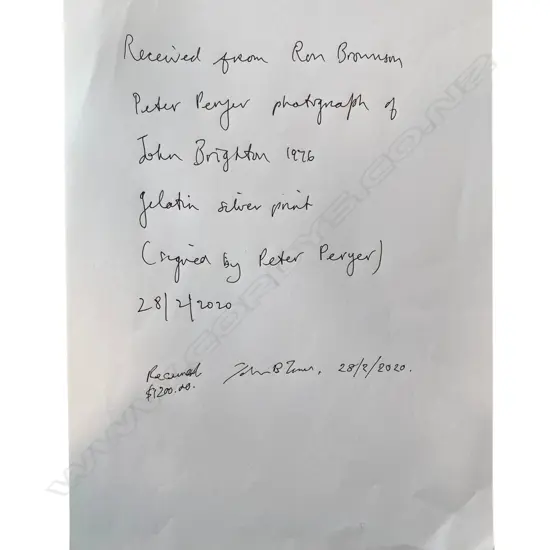 Received from Ron Bronnson
Peter Peryer photograph of
John Brighton 1976
gelatin silver print
(signed by Peter Peryer)
28/2/2020
Received 28/2/2020.
$1200.00.